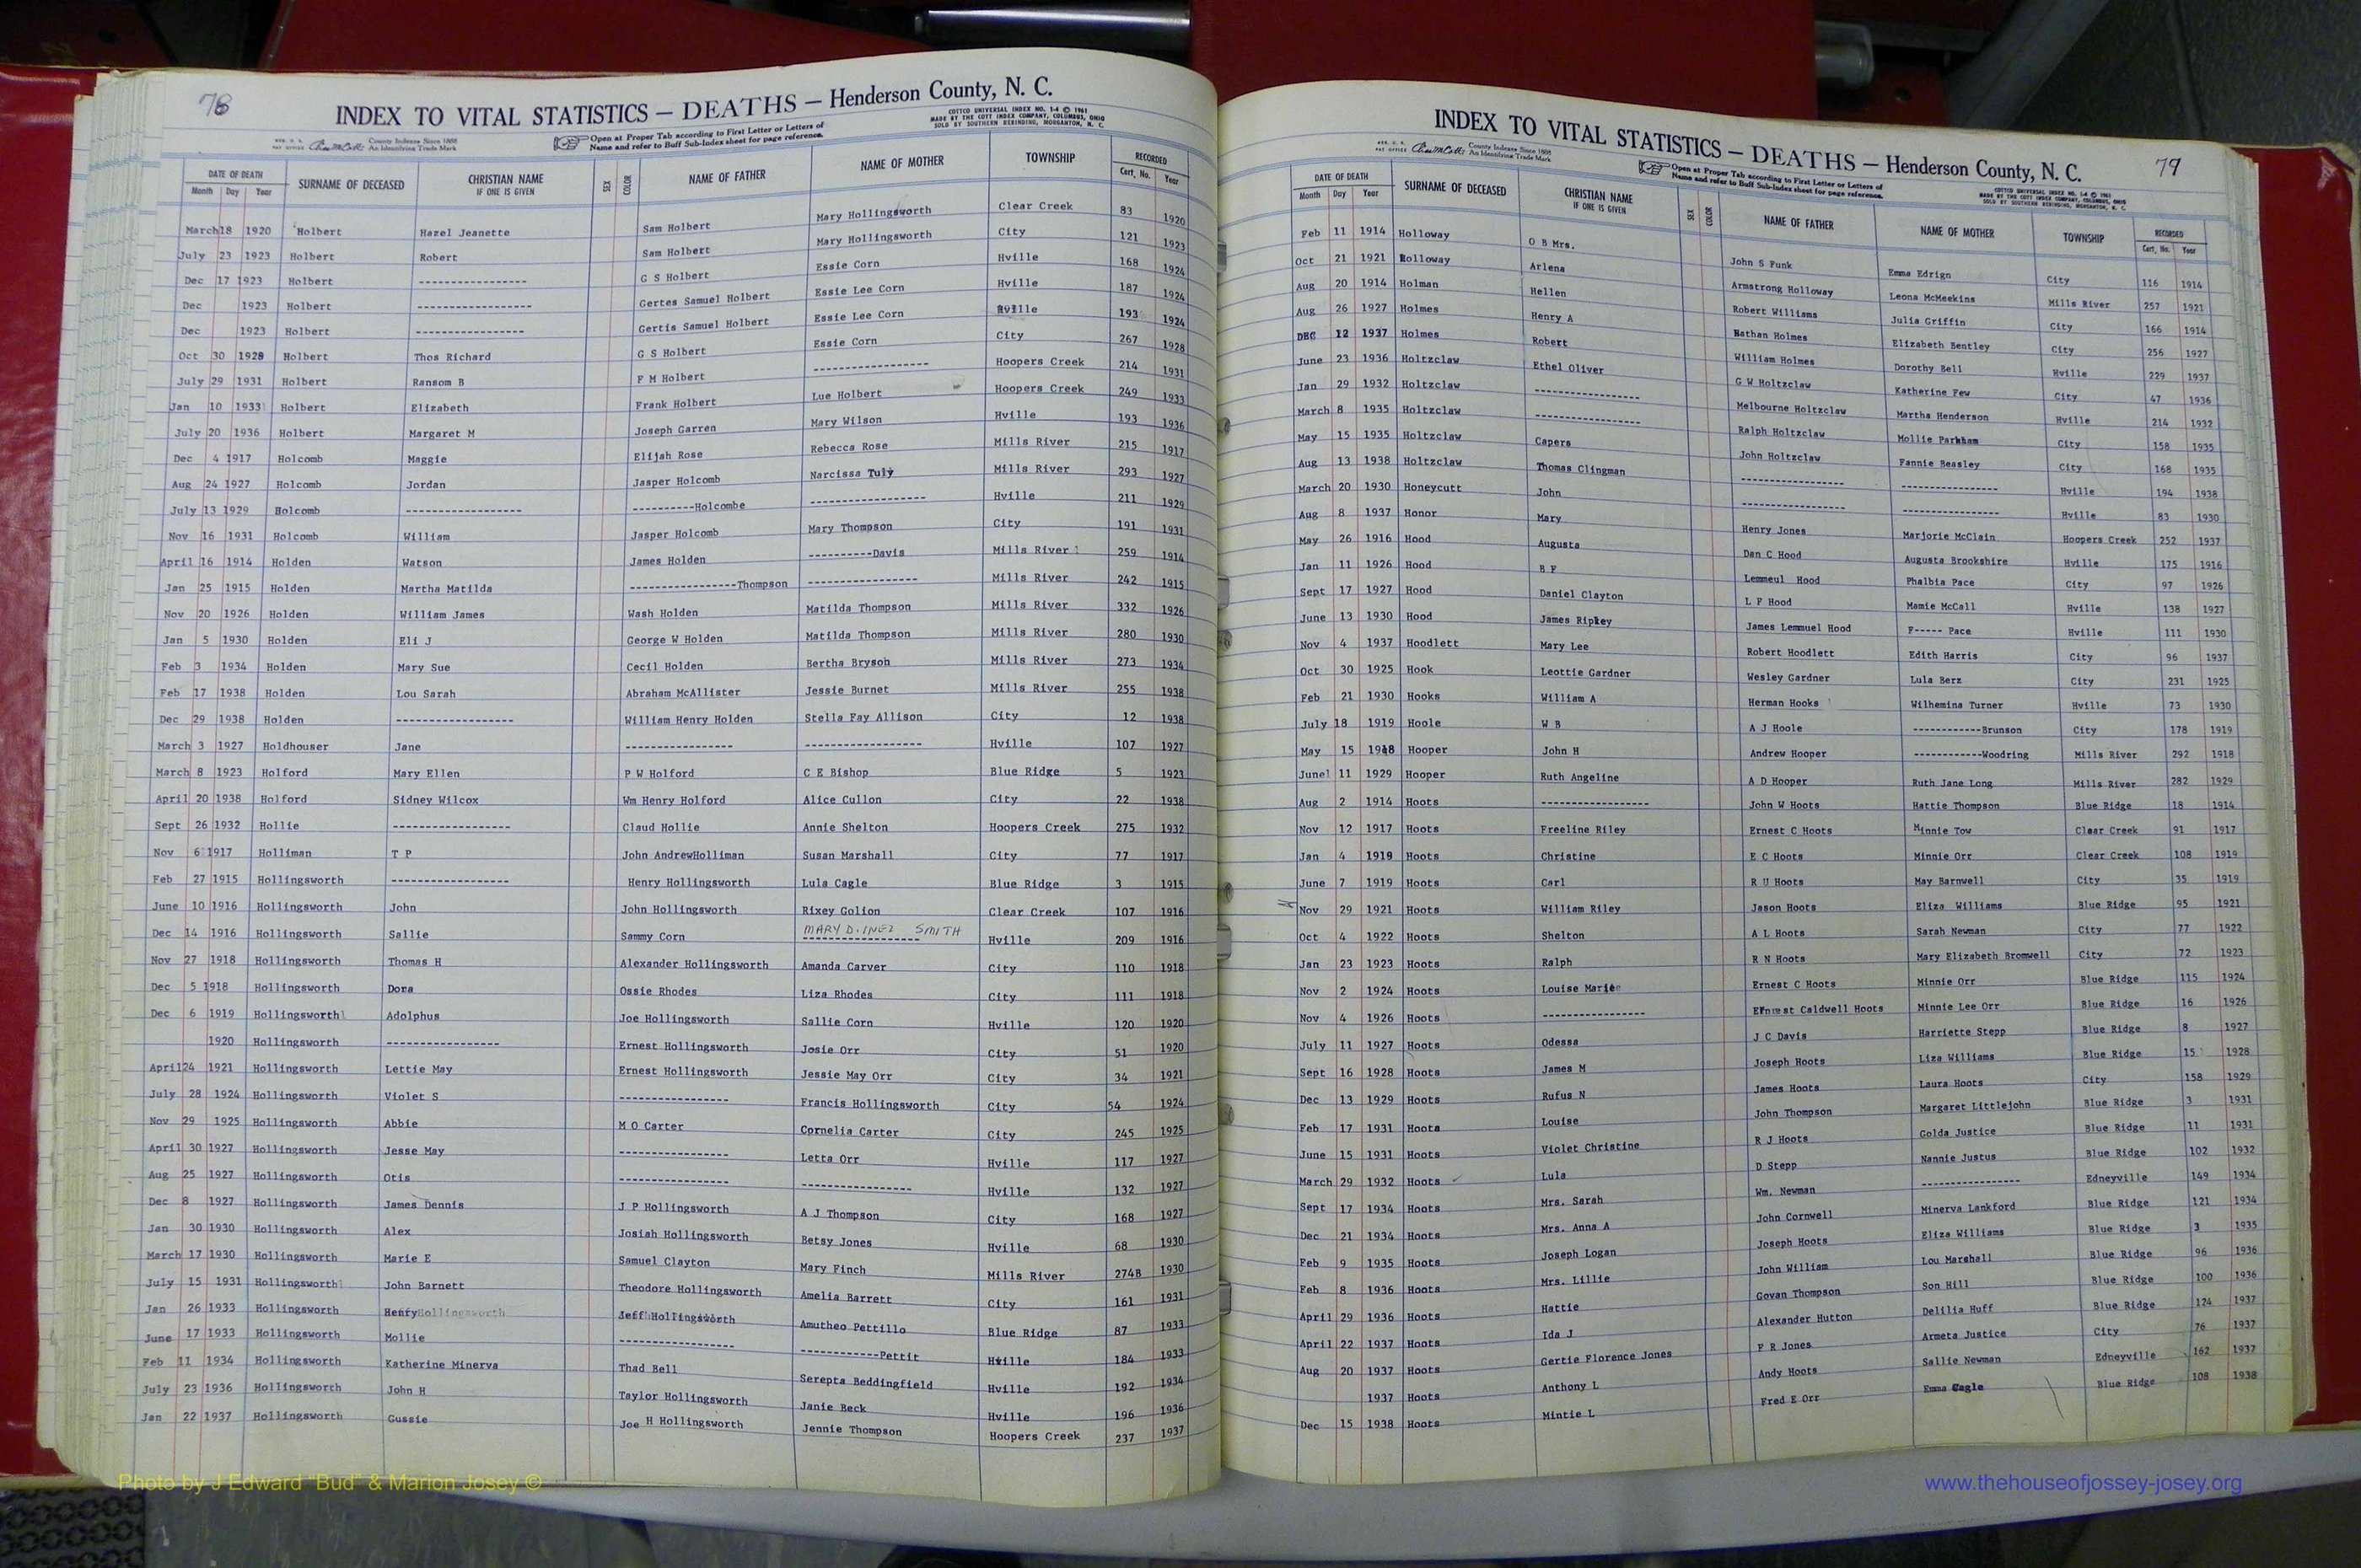 78
INDEX TO VITAL STATISTICS — DEATHS — Henderson County, N. C.
COTTCO UNIVERSAL INDEX NO. 1-4 © 1961
MADE BY THE COTT INDEX COMPANY, COLUMBUS, OHIO
SOLD BY SOUTHERN REBINDING, MORGANTON, N. C.
County Indexes Since 1888
An Identifying Trade Mark
Open at Proper Tab according to First Letter or Letters of
Name and refer to Buff Sub-Index sheet for page reference.
DATE OF DEATH SURNAME OF DECEASED CHRISTIAN NAME IF ONE IS GIVEN SEX COLOR NAME OF FATHER NAME OF MOTHER TOWNSHIP RECORDED
Month Day Year Cert. No. Year
March 18 1920 Holbert Hazel Jeanette Sam Holbert Mary Hollingsworth Clear Creek 83 1920
July 23 1923 Holbert Robert Sam Holbert Mary Hollingsworth City 121 1923
Dec 17 1923 Holbert ----------------- G S Holbert Essie Corn Hville 168 1924
Dec 1923 Holbert ------------------ Gertes Samuel Holbert Essie Lee Corn Hville 187 1924
Dec 1923 Holbert ----------------- Gertis Samuel Holbert Essie Lee Corn Hville 193 1924
Oct 30 1928 Holbert Thos Richard G S Holbert Essie Corn City 267 1928
July 29 1931 Holbert Ransom B F M Holbert ------------------ Hoopers Creek 214 1931
Jan 10 1933 Holbert Elizabeth Frank Holbert Lue Holbert Hoopers Creek 249 1933
July 20 1936 Holbert Margaret M Joseph Garren Mary Wilson Hville 193 1936
Dec 4 1917 Holcomb Maggie Elijah Rose Rebecca Rose Mills River 215 1917
Aug 24 1927 Holcomb Jordan Jasper Holcomb Narcissa Tuly Mills River 293 1927
July 13 1929 Holcomb ------------------ ----------Holcombe ------------------ Hville 211 1929
Nov 16 1931 Holcomb William Jasper Holcomb Mary Thompson City 191 1931
April 16 1914 Holden Watson James Holden ----------Davis Mills River 259 1914
Jan 25 1915 Holden Martha Matilda -----------------Thompson ----------------- Mills River 242 1915
Nov 20 1926 Holden William James Wash Holden Matilda Thompson Mills River 332 1926
Jan 5 1930 Holden Eli J George W Holden Matilda Thompson Mills River 280 1930
Feb 3 1934 Holden Mary Sue Cecil Holden Bertha Bryson Mills River 273 1934
Feb 17 1938 Holden Lou Sarah Abraham McAllister Jessie Burnet Mills River 255 1938
Dec 29 1938 Holden ------------------ William Henry Holden Stella Fay Allison City 12 1938
March 3 1927 Holdhouser Jane ----------------- ------------------ Hville 107 1927
March 8 1923 Holford Mary Ellen P W Holford C E Bishop Blue Ridge 5 1923
April 20 1938 Holford Sidney Wilcox Wm Henry Holford Alice Cullon City 22 1938
Sept 26 1932 Hollie ------------------ Claud Hollie Annie Shelton Hoopers Creek 275 1932
Nov 6 1917 Holliman T P John AndrewHolliman Susan Marshall City 77 1917
Feb 27 1915 Hollingsworth ------------------ Henry Hollingsworth Lula Cagle Blue Ridge 3 1915
June 10 1916 Hollingsworth John John Hollingsworth Rixey Golion Clear Creek 107 1916
Dec 14 1916 Hollingsworth Sallie Sammy Corn MARY D. INEZ SMITH ------------------ Hville 209 1916
Nov 27 1918 Hollingsworth Thomas H Alexander Hollingsworth Amanda Carver City 110 1918
Dec 5 1918 Hollingsworth Dora Ossie Rhodes Liza Rhodes City 111 1918
Dec 6 1919 Hollingsworth Adolphus Joe Hollingsworth Sallie Corn Hville 120 1920
1920 Hollingsworth ------------------ Ernest Hollingsworth Josie Orr City 51 1920
April 24 1921 Hollingsworth Lettie May Ernest Hollingsworth Jessie May Orr City 34 1921
July 28 1924 Hollingsworth Violet S ----------------- Francis Hollingsworth City 54 1924
Nov 29 1925 Hollingsworth Abbie M O Carter Cornelia Carter City 245 1925
April 30 1927 Hollingsworth Jesse May ----------------- Letta Orr Hville 117 1927
Aug 25 1927 Hollingsworth Otis ----------------- ----------------- Hville 132 1927
Dec 8 1927 Hollingsworth James Dennis J P Hollingsworth A J Thompson City 168 1927
Jan 30 1930 Hollingsworth Alex Josiah Hollingsworth Betsy Jones Hville 68 1930
March 17 1930 Hollingsworth Marie E Samuel Clayton Mary Finch Mills River 274B 1930
July 15 1931 Hollingsworth John Barnett Theodore Hollingsworth Amelia Barrett City 161 1931
Jan 26 1933 Hollingsworth HenryHollingsworth Jeff Hollingsworth Amutheo Pettillo Blue Ridge 87 1933
June 17 1933 Hollingsworth Mollie ------------------ ------------Pettit Hville 184 1933
Feb 11 1934 Hollingsworth Katherine Minerva Thad Bell Serepta Beddingfield Hville 192 1934
July 23 1936 Hollingsworth John H Taylor Hollingsworth Janie Beck Hville 196 1936
Jan 22 1937 Hollingsworth Gussie Joe H Hollingsworth Jennie Thompson Hoopers Creek 237 1937
79
INDEX TO VITAL STATISTICS — DEATHS — Henderson County, N. C.
County Indexes Since 1888
An Identifying Trade Mark
Open at Proper Tab according to First Letter or Letters of
Name and refer to Buff Sub-Index sheet for page reference.
COTTCO UNIVERSAL INDEX NO. 1-4 © 1961
MADE BY THE COTT INDEX COMPANY, COLUMBUS, OHIO
SOLD BY SOUTHERN REBINDING, MORGANTON, N. C.
DATE OF DEATH SURNAME OF DECEASED CHRISTIAN NAME IF ONE IS GIVEN SEX COLOR NAME OF FATHER NAME OF MOTHER TOWNSHIP RECORDED
Month Day Year Cert. No. Year
Feb 11 1914 Holloway O B Mrs. John S Funk Emma Edrign City 116 1914
Oct 21 1921 Holloway Arlena Armstrong Holloway Leona McMeekins Mills River 257 1921
Aug 20 1914 Holman Hellen Robert Williams Julia Griffin City 166 1914
Aug 26 1927 Holmes Henry A Nathan Holmes Elizabeth Bentley City 256 1927
DEC 12 1937 Holmes Robert William Holmes Dorothy Bell Hville 229 1937
June 23 1936 Holtzclaw Ethel Oliver G W Holtzclaw Katherine Few City 47 1936
Jan 29 1932 Holtzclaw ----------------- Melbourne Holtzclaw Martha Henderson Hville 214 1932
March 8 1935 Holtzclaw ----------------- Ralph Holtzclaw Mollie Parkham City 158 1935
May 15 1935 Holtzclaw Capers John Holtzclaw Fannie Beasley City 168 1935
Aug 13 1938 Holtzclaw Thomas Clingman ----------------- ---------------- Hville 194 1938
March 20 1930 Honeycutt John ----------------- ---------------- Hville 83 1930
Aug 8 1937 Honor Mary Henry Jones Marjorie McClain Hoopers Creek 252 1937
May 26 1916 Hood Augusta Dan C Hood Augusta Brookshire Hville 175 1916
Jan 11 1926 Hood B F Lemmeul Hood Phalbia Pace City 97 1926
Sept 17 1927 Hood Daniel Clayton L F Hood Mamie McCall Hville 138 1927
June 13 1930 Hood James Ripkey James Lemmuel Hood F----- Pace Hville 111 1930
Nov 4 1937 Hoodlett Mary Lee Robert Hoodlett Edith Harris City 96 1937
Oct 30 1925 Hook Leottie Gardner Wesley Gardner Lula Berz City 231 1925
Feb 21 1930 Hooks William A Herman Hooks Wilhemina Turner Hville 73 1930
July 18 1919 Hoole W B A J Hoole -----------Brunson City 178 1919
May 15 1918 Hooper John H Andrew Hooper -----------Woodring Mills River 292 1918
June 11 1929 Hooper Ruth Angeline A D Hooper Ruth Jane Long Mills River 282 1929
Aug 2 1914 Hoots ----------------- John W Hoots Hattie Thompson Blue Ridge 18 1914
Nov 12 1917 Hoots Freeline Riley Ernest C Hoots Minnie Tow Clear Creek 91 1917
Jan 4 1919 Hoots Christine E C Hoots Minnie Orr Clear Creek 108 1919
June 7 1919 Hoots Carl R U Hoots May Barnwell City 35 1919
Nov 29 1921 Hoots William Riley Jason Hoots Eliza Williams Blue Ridge 95 1921
Oct 4 1922 Hoots Shelton A L Hoots Sarah Newman City 77 1922
Jan 23 1923 Hoots Ralph R N Hoots Mary Elizabeth Bromwell City 72 1923
Nov 2 1924 Hoots Louise Marie Ernest C Hoots Minnie Orr Blue Ridge 115 1924
Nov 4 1926 Hoots ---------------- Ernest Caldwell Hoots Minnie Lee Orr Blue Ridge 16 1926
July 11 1927 Hoots Odessa J C Davis Harriette Stepp Blue Ridge 8 1927
Sept 16 1928 Hoots James M Joseph Hoots Liza Williams Blue Ridge 15 1928
Dec 13 1929 Hoots Rufus N James Hoots Laura Hoots City 158 1929
Feb 17 1931 Hoots Louise John Thompson Margaret Littlejohn Blue Ridge 3 1931
June 15 1931 Hoots Violet Christine R J Hoots Golda Justice Blue Ridge 11 1931
March 29 1932 Hoots Lula D Stepp Nannie Justus Blue Ridge 102 1932
Sept 17 1934 Hoots Mrs. Sarah Wm. Newman ---------------- Edneyville 149 1934
Dec 21 1934 Hoots Mrs. Anna A John Cornwell Minerva Lankford Blue Ridge 121 1934
Feb 9 1935 Hoots Joseph Logan Joseph Hoots Eliza Williams Blue Ridge 3 1935
Feb 8 1936 Hoots Mrs. Lillie John William Lou Marshall Blue Ridge 96 1936
April 29 1936 Hoots Hattie Govan Thompson Son Hill Blue Ridge 100 1936
April 22 1937 Hoots Ida J Alexander Hutton Delilia Huff Blue Ridge 124 1937
Aug 20 1937 Hoots Gertie Florence Jones F R Jones Armeta Justice City 76 1937
1937 Hoots Anthony L Andy Hoots Sallie Newman Edneyville 162 1937
Dec 15 1938 Hoots Mintie L Fred E Orr Emma Cagle Blue Ridge 108 1938
Photo by J Edward “Bud” & Marion Josey ©
www.thehouseofjossey-josey.org